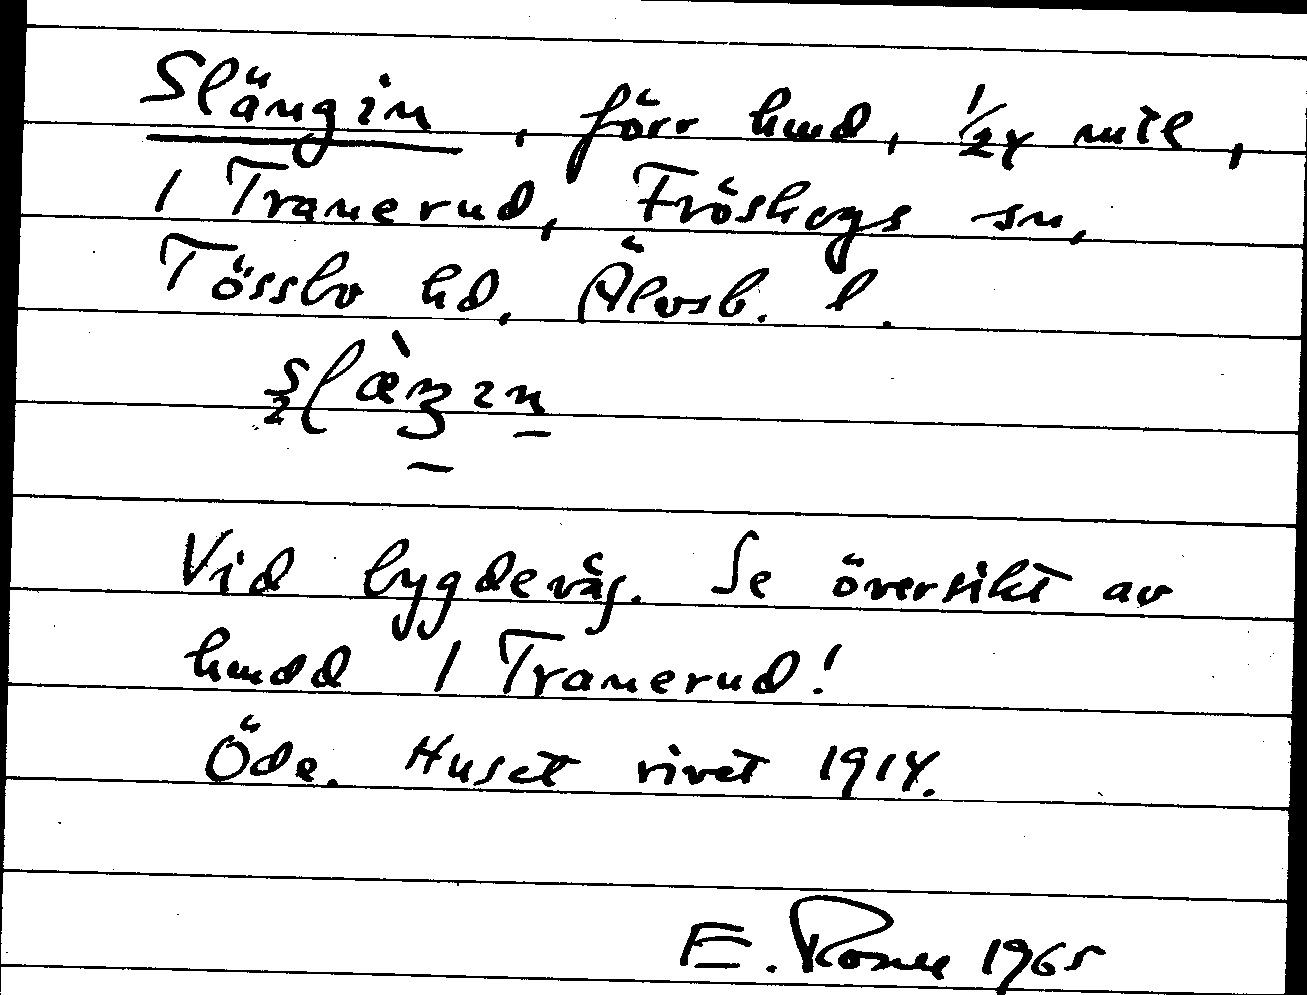 Slängin, förr hmd, 1/24 mtl,
1 Tranerud, Fröskogs sn,
Tössbo hd. Älvsb. l.
Vid bygdeväg. Se översikt av
hmdd 1 Tranerud!
Öde. Huset rivet 1914.
E. 1965